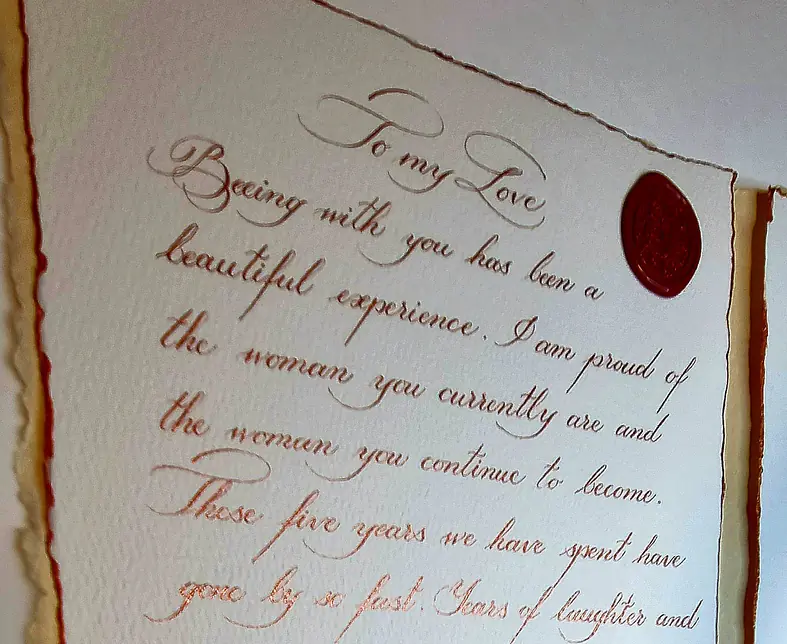 To my Love
Beeing with you has been a
beautiful experience. I am proud of
the woman you currently are and
the woman you continue to become.
These five years we have spent have
gone by so fast. Years of laughter and